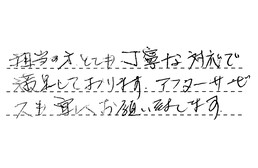 担当の方とても丁寧な対応で
満足しております。アフターサービ
スも宜しくお願い致します。